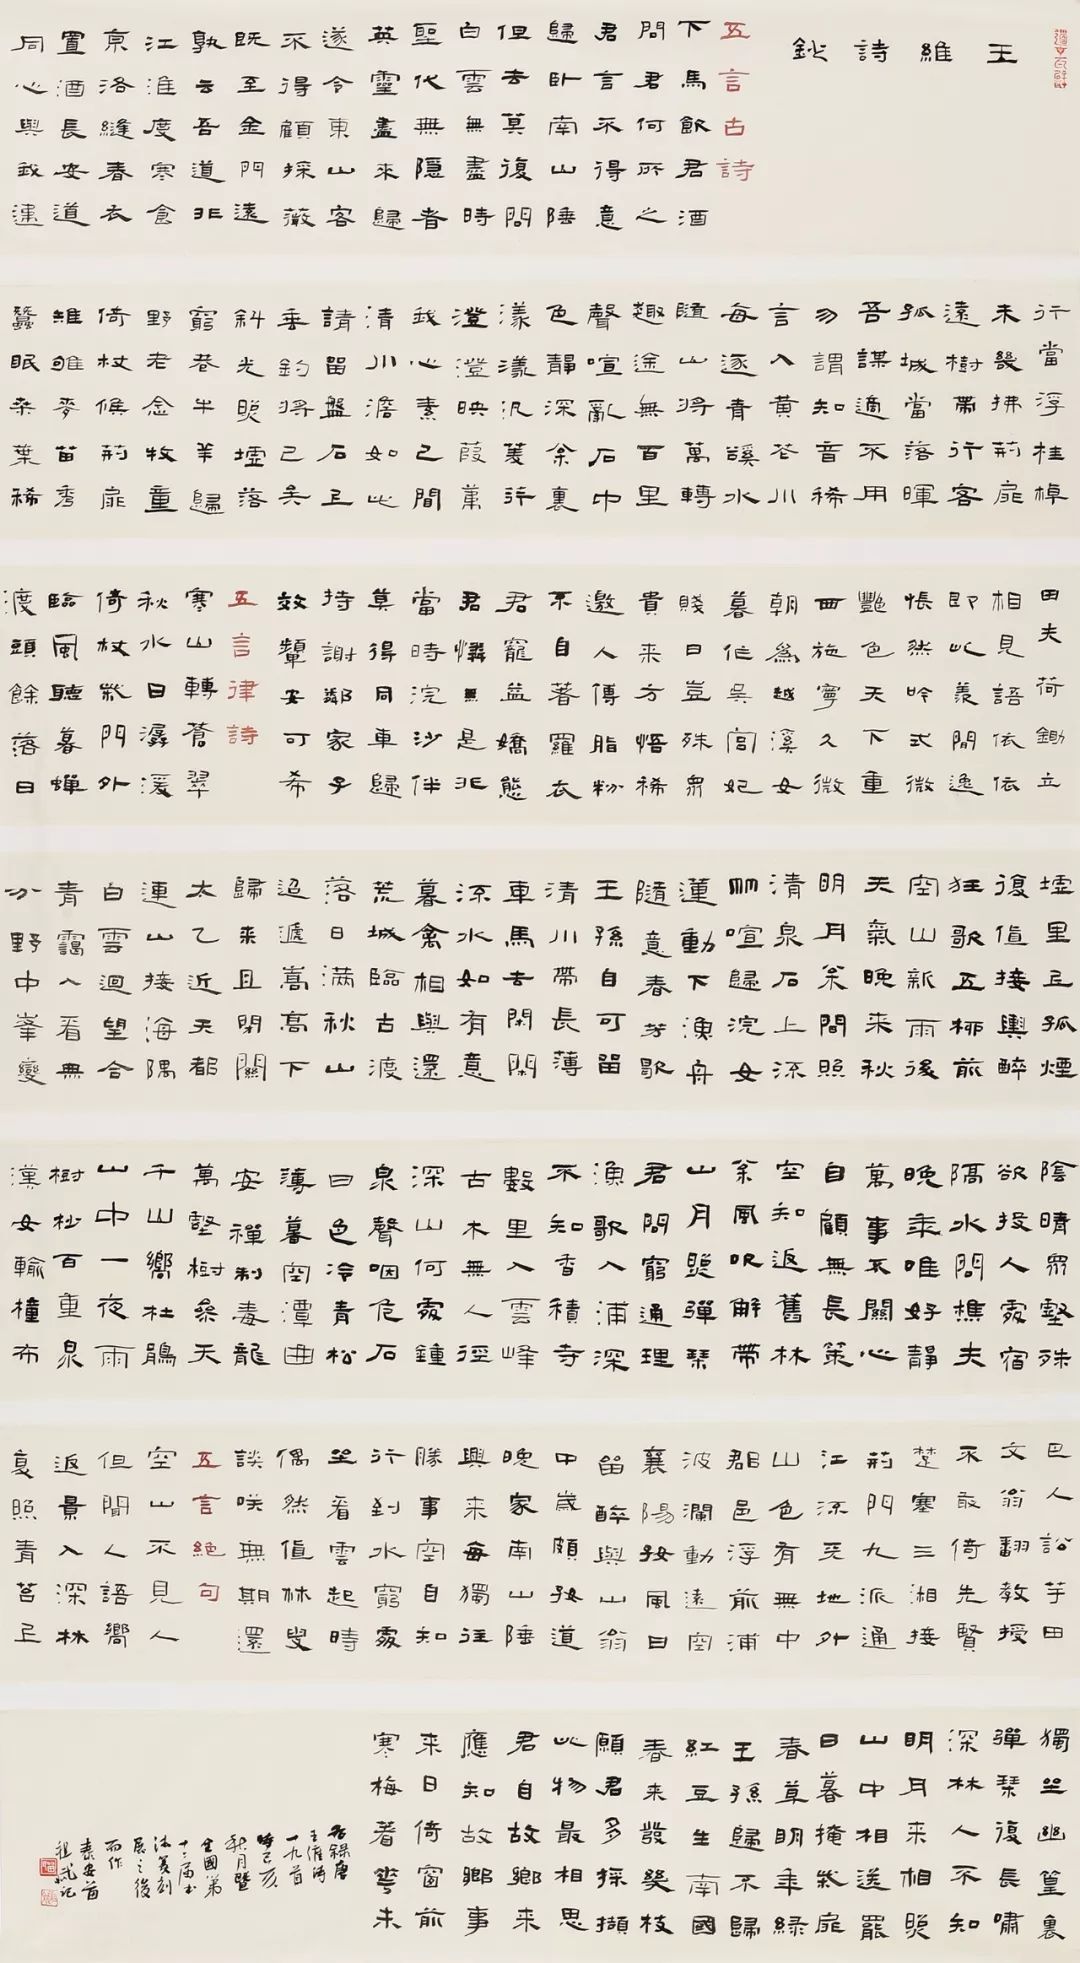 王維詩鈔
五言古詩
下馬飲君酒
問君何所之
君言不得意
歸臥南山陲
但去莫復問
白雲無盡時
聖代無隱者
英靈盡來歸
遂令東山客
不得顧採薇
既至金門遠
孰云吾道非
江淮度寒食
京洛縫春衣
置酒長安道
同心與我違
行當浮桂棹
未幾拂荊扉
遠樹帶行客
孤城當落暉
吾謀適不用
勿謂知音稀
言入黃花川
每逐青谿水
隨山將萬轉
趣途無百里
聲喧亂石中
色靜深松裏
漾漾汎菱荇
澄澄映葭葦
我心素已閒
清川澹如此
請留盤石上
垂釣將已矣
斜光照墟落
窮巷牛羊歸
野老念牧童
倚杖候荊扉
雉雊麥苗秀
蠶眠桑葉稀
田夫荷鋤立
相見語依依
即此羨閒逸
悵然吟式微
艷色天下重
西施寧久微
朝為越溪女
暮作吳宮妃
賤日豈殊眾
貴來方悟稀
邀人傅脂粉
不自著羅衣
君寵益嬌態
君憐無是非
當時浣沙伴
莫得同車歸
持謝鄰家子
效顰安可希
五言律詩
寒山轉蒼翠
秋水日潺湲
倚杖柴門外
臨風聽暮蟬
渡頭餘落日
墟里上孤煙
復值接輿醉
狂歌五柳前
空山新雨後
天氣晚來秋
明月松間照
清泉石上流
竹喧歸浣女
蓮動下漁舟
隨意春芳歇
王孫自可留
清川帶長薄
車馬去閑閑
流水如有意
暮禽相與還
荒城臨古渡
落日滿秋山
迢遞嵩高下
歸來且閉關
太乙近天都
連山接海隅
白雲迴望合
青靄入看無
分野中峯變
陰晴眾壑殊
欲投人處宿
隔水問樵夫
晚年唯好靜
萬事不關心
自顧無長策
空知返舊林
松風吹解帶
山月照彈琴
君問窮通理
漁歌入浦深
不知香積寺
數里入雲峰
古木無人徑
深山何處鐘
泉聲咽危石
日色冷青松
薄暮空潭曲
安禪制毒龍
萬壑樹參天
千山響杜鵑
山中一夜雨
樹杪百重泉
漢女輸橦布
巴人訟芋田
文翁翻教授
不敢倚先賢
楚塞三湘接
荊門九派通
江流天地外
山色有無中
郡邑浮前浦
波瀾動遠空
襄陽好風日
留醉與山翁
中歲頗好道
晚家南山陲
興來每獨往
勝事空自知
行到水窮處
坐看雲起時
偶然值林叟
談咲無期還
五言絕句
空山不見人
但聞人語響
返景入深林
復照青苔上
獨坐幽篁裏
彈琴復長嘯
深林人不知
明月來相照
山中相送罷
日暮掩柴扉
春草明年綠
王孫歸不歸
紅豆生南國
春來發幾枝
願君多採擷
此物最相思
君自故鄉來
應知故鄉事
來日倚窗前
寒梅著花未
右錄唐
王維詩
一九首
時己亥
秋月暨
全國第
十二屆書
法篆刻
展之後
而作